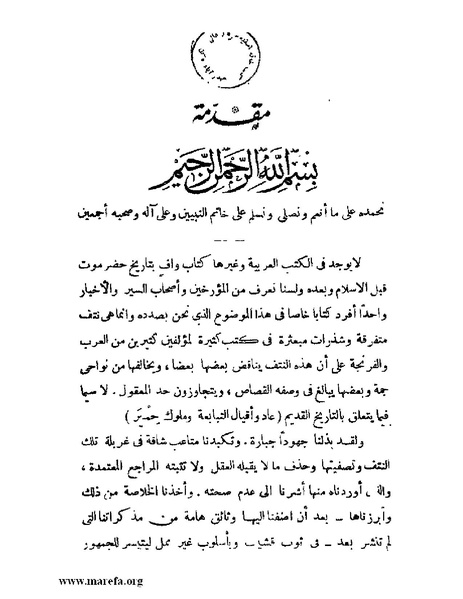 مقدمة
بسم الله الرحمن الرحيم
نحمده على ما أنعم ونصلى ونسلم على خاتم النبيين وعلى آله وصحبه أجمعين
لا يوجد فى الكتب العربية وغيرها كتاب واف بتاريخ حضرموت
قبل الاسلام وبعده ولسنا نعرف من المؤرخين وأصحاب السير والأخبار
واحدا أفرد كتابا خاصا فى هذا الموضوع الذي نحن بصدده وانما هى نتف
متفرقة وشذرات مبعثرة فى كتب كثيرة لمؤلفين كثيرين من العرب
والفرنجة على أن هذه النتف يناقض بعضها بعضا، ويخالفها من نواحى
جمة وبعضها يبالغ فى وصفه القصاص، ويتجاوزون حد المعقول. لا سيما
فيما يتعلق بالتاريخ القديم (عاد وأقيال التبابعة وملوك حِمْيَر)
ولقد بذلنا جهودا جبارة. وتكبدنا متاعب شاقة فى غربلة تلك
النتف وتصفيتها وحذف ما لا يقبله العقل ولا تثبته المراجع المعتمدة،
أوردناه منها أشرنا الى عدم صحته. وأخذنا الخلاصة من ذلك
وأبرزناها — بعد أن اضفنا اليها وثائق هامة من مذكراتنا التى
لم تنشر بعد — فى ثوب قشيب وبأسلوب غير ممل ليتيسر للجمهور
www.marefa.org